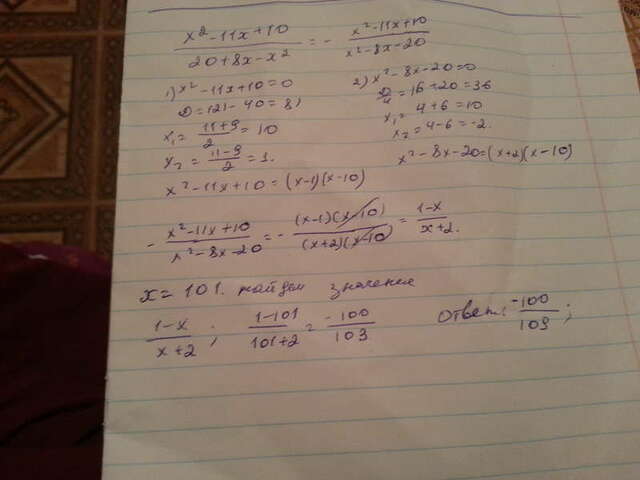 x²-11x+10 / 20+8x-x² = - x²-11x+10 / x²-8x-20
1) x²-11x+10=0
D=121-40=81
x₁= 11+9 / 2 = 10
x₂= 11-9 / 2 = 1.
x²-11x+10=(x-1)(x-10)
2) x²-8x-20=0
D/4=16+20=36
x₁= 4+6=10
x₂=4-6=-2.
x²-8x-20=(x+2)(x-10)
- x²-11x+10 / x²-8x-20 = - (x-1)(x-10) / (x+2)(x-10) = 1-x / x+2.
x=101. найдем значение
1-x / x+2 ; 1-101 / 101+2 = -100 / 103
Ответ: -100 / 103 ;